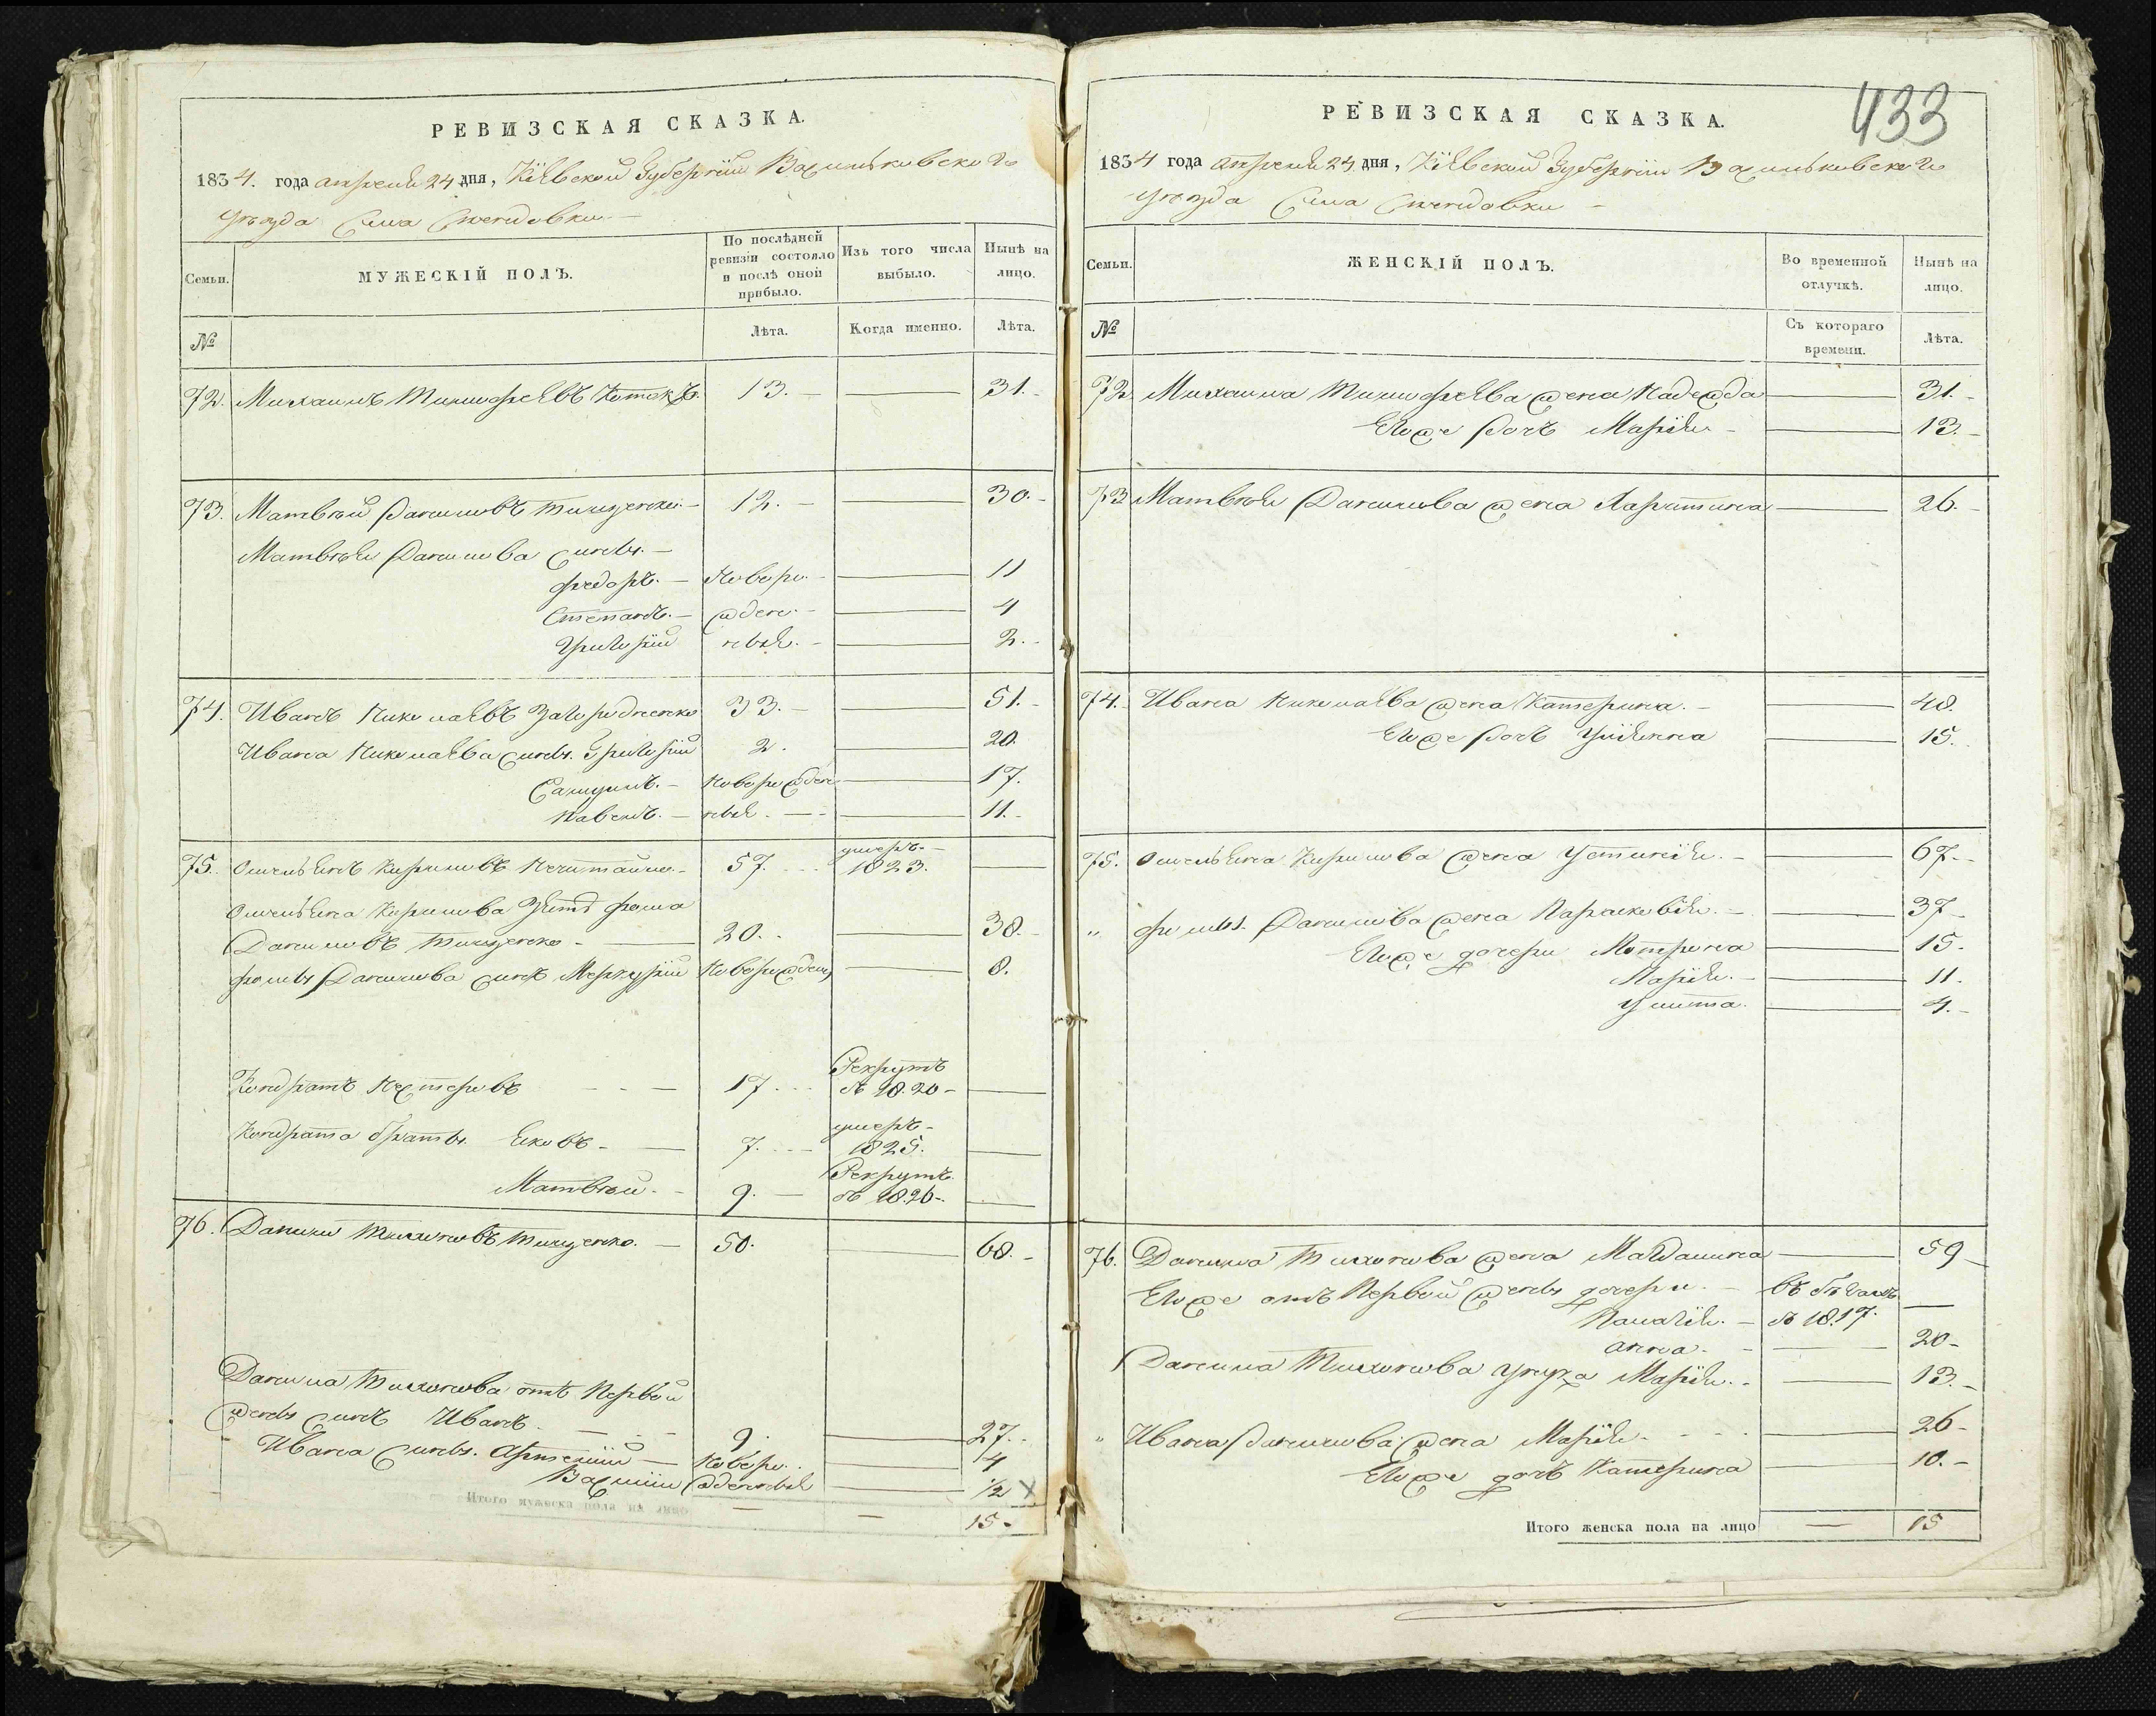 РЕВИЗСКАЯ СКАЗКА.
1834. года апреля 24 дня, Кіевской Губерніи Васильковского
уѣзда Села
Семьи.
МУЖЕСКІЙ ПОЛЪ.
По послѣдней ревизіи состояло и послѣ оной прибыло.
Изъ того числа выбыло.
Нынѣ на лицо.
№
Лѣта.
Когда именно.
Лѣта.
72. Михаилъ Тимофеевъ 13. 31.
73. Матвѣй Даниловъ Тищенко 12. 30.
Матвѣя Данилова сыны.
Федоръ. Новоро- 11
Степанъ. жден- 4
Григорій ныя. 2.
74. Иванъ Николаевъ Загородненко 33. 51.
Ивана Николаева сыны. Григорій 2. 20.
Самуилъ. Новорожден 17.
Павелъ. ныя. 11.
75. Омельянъ Кириловъ Нечитайло. 57. умеръ 1823.
Омельяна Кирилова Зять Фома
Даниловъ Тищенко 20. 38.
Фомы Данилова сынъ Меркурій Новорожден 8.
Кондратъ Нестеровъ 17 Рекрутъ въ 1820
Кондрата браты. Яковъ 7. умеръ 1825.
Матвѣй. 9. Рекрутъ въ 1826.
76. Данило Тихоновъ Тищенко. 50. 68.
Данила Тихонова отъ Первой
жены сынъ Иванъ. 9. 27.
Ивана сыны. Артемій Новоро- 4
Василій жденныя 1/2 х
Итого мужеска пола на лицо 15.
433
РЕВИЗСКАЯ СКАЗКА.
1834 года апреля 24 дня, Кіевской Губерніи Васильковского
уѣзда Села
Семьи.
ЖЕНСКІЙ ПОЛЪ.
Во временной отлучкѣ.
Нынѣ на лицо.
№
Съ котораго времени.
Лѣта.
72. Михаила Тимофеева жена Надежда 31.
Егоже дочь Марія 13.
73 Матвѣя Данилова жена Харитина 26.
74. Ивана Николаева жена Катерина. 48.
Егоже дочь Уліянна 15.
75. Омельяна Кирилова жена Устинія. 67.
" Фомы. Данилова жена Параскевія. 37
Егоже дочери Мотрина 15.
Марія. 11.
Улита. 4.
76. Данила Тихонова жена Магдалина 59
Егоже отъ Первой жены дочери.
Палагія. въ бѣгахъ въ 1817.
Анна. 20
Данила Тихонова унука Марія. 13.
" Ивана Данилова жена Марія. 26
Егоже дочь Катерина 10.
Итого женска пола на лицо 15